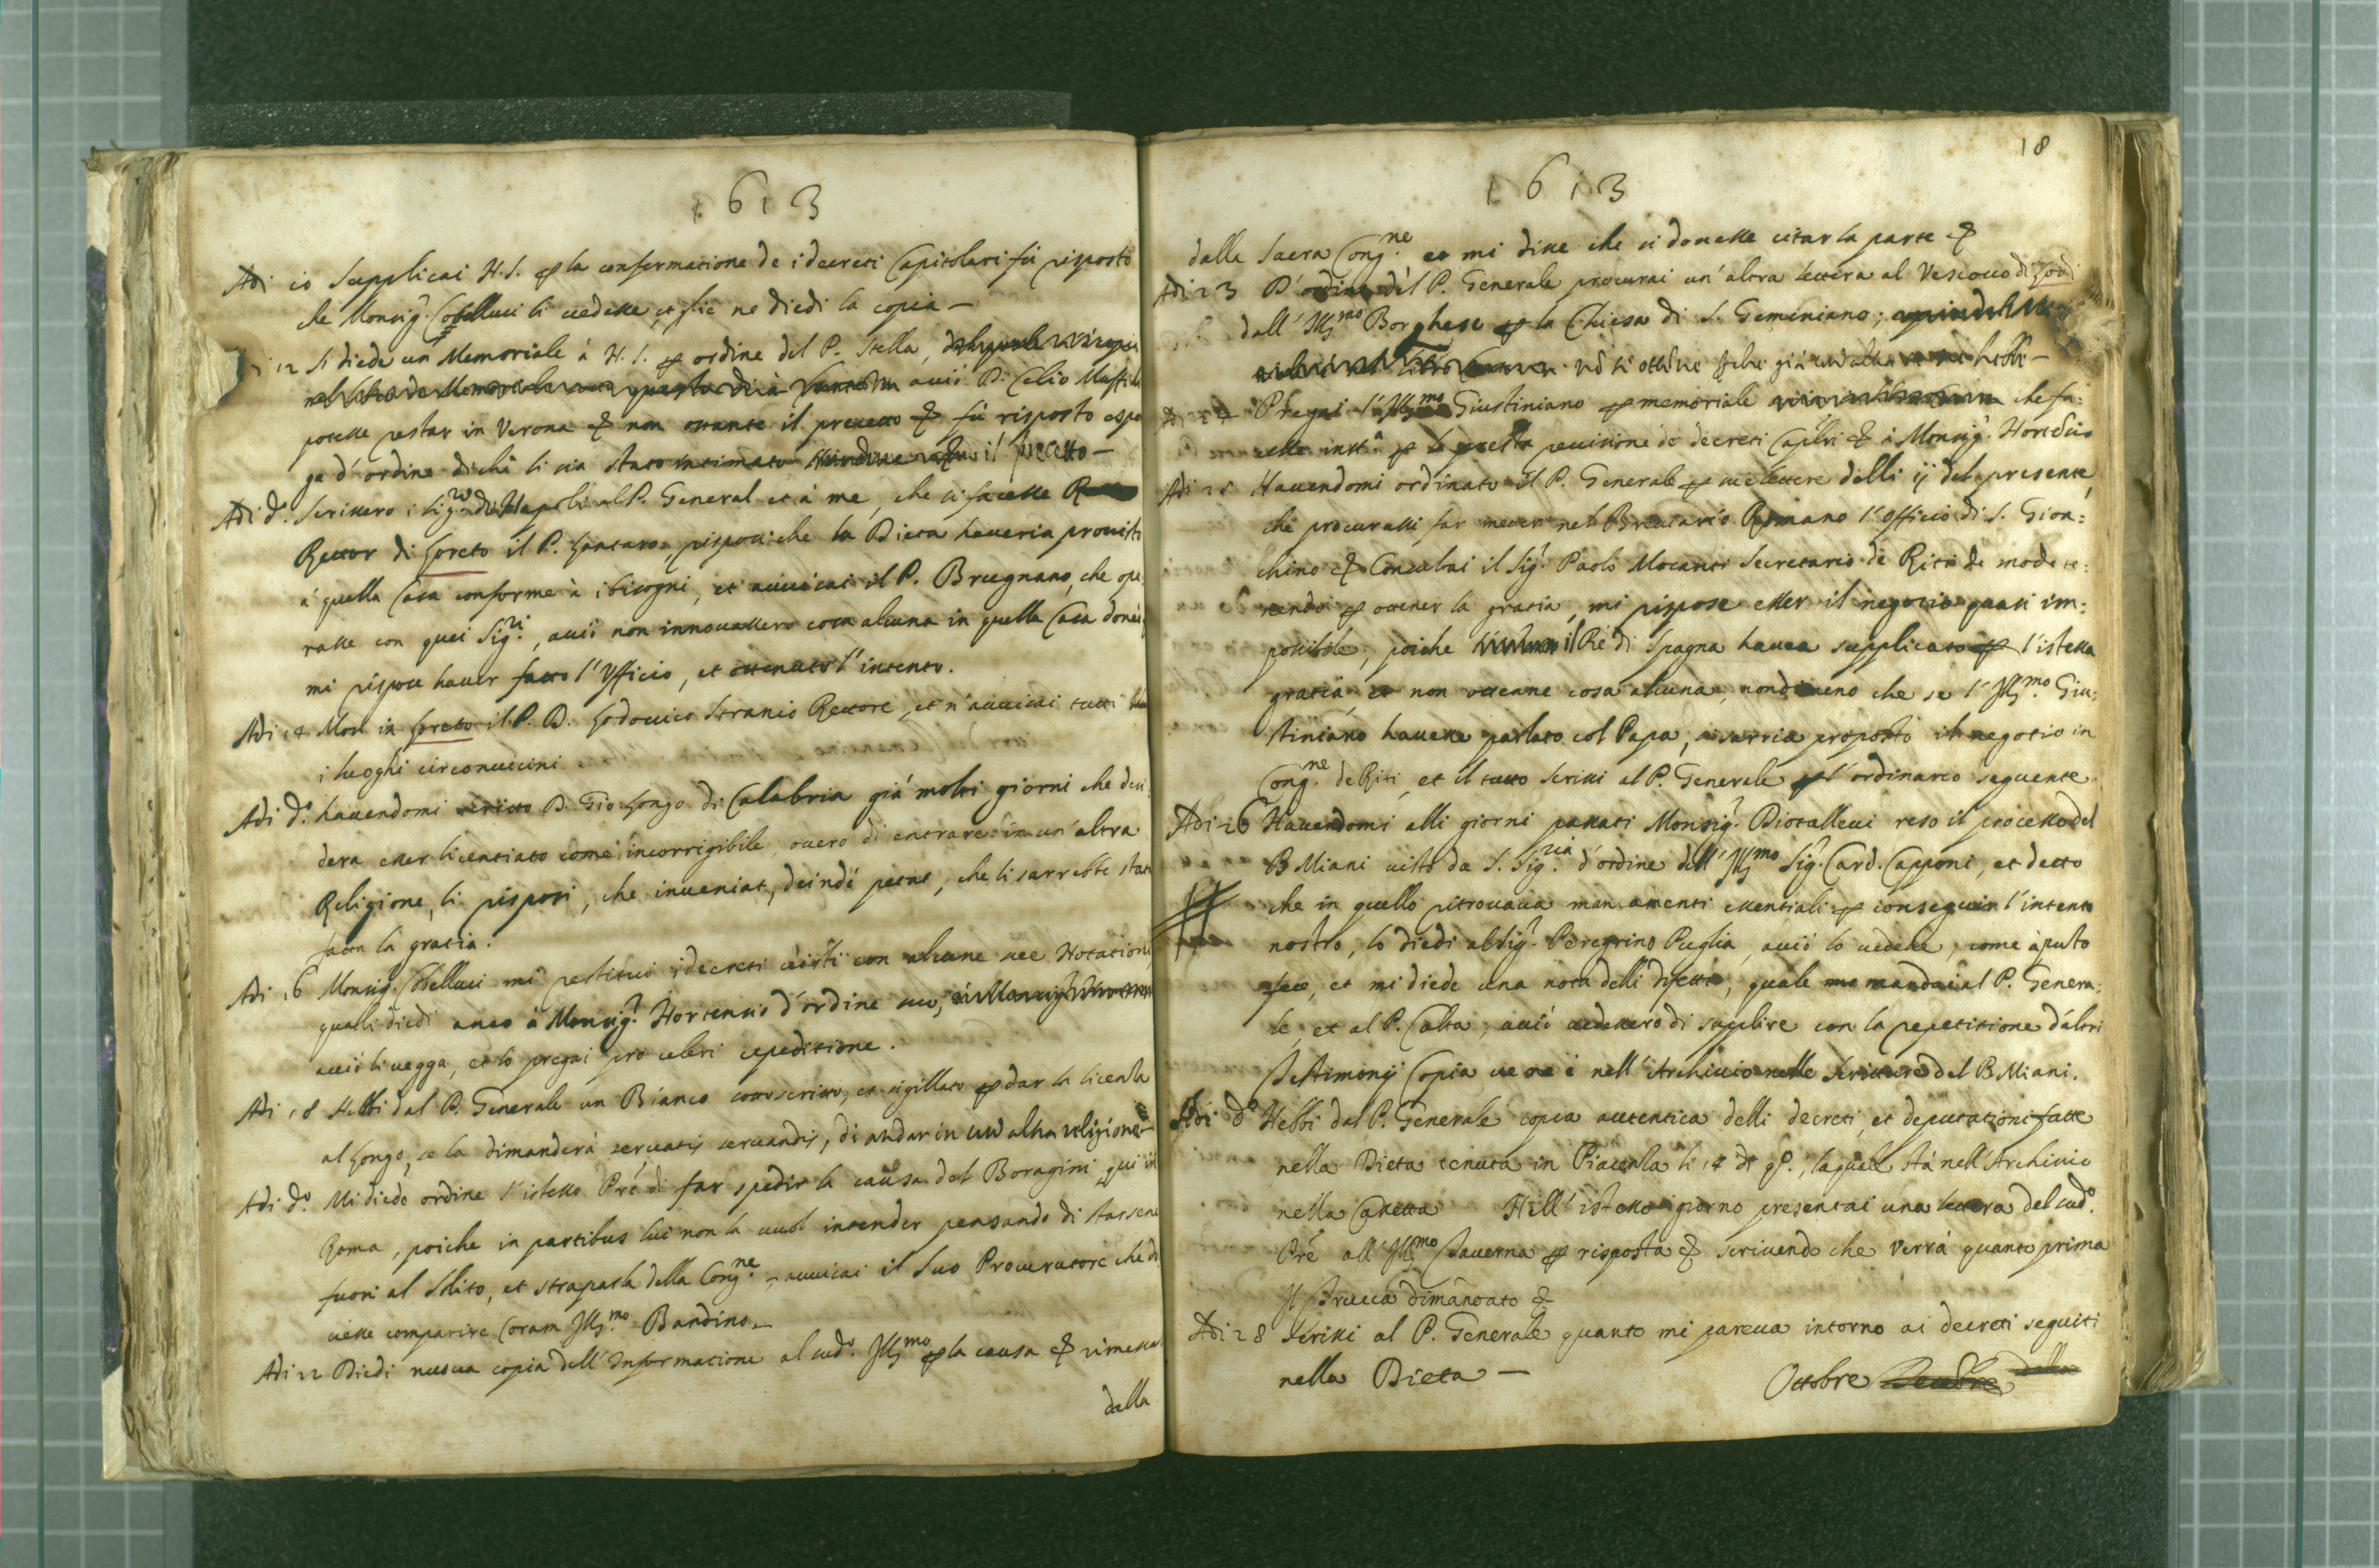 1613
Adi 10 Supplicai N.S. per la confermatione de i decreti Capitolari fù risposto
che Monsig.r Cobelluci li vedesse, et glie ne diedi la copia —
12 Si diede un Memoriale à N.S. per ordine del P. Stella,
acciò D. Celio Maffi
potesse restar in Verona & non ostante il precetto & fù risposto espo
ga d'ordine di chi li sia stato intimato il precetto —
Adi d.o Scrissero i Sig.ri di Napoli al P. General et à me, che si facesse
Rettor di Loreto il P. Santaro risposi che la Dieta haveria provisto
à quella Casa conforme à i bisogni, et avvisai il P. Brugnano, che ope
rasse con quei Sig.ri, acciò non innovassero cosa alcuna in quella Casa
mi rispose haver fatto l'Ufficio, et ottenuto l'intento.
Adi 14 Morì in Loreto il P. D. Lodovico Stranio Rettore, et n'avvisai tutti
i luoghi circonvicini
Adi d.o havendomi scritto D. Gio. Longo di Calabria già molti giorni che desi:
dera esser licentiato come incorrigibile, overo di entrare in un'altra
Religione, li risposi, che inveniat, deindè petat, che li sarrebbe stata
fatta la gratia.
Adi 16 Monsig.r Cobelluci mi restituì i decreti visti con alcune sue Notationi,
quali diedi anco à Monsig.r Hortensio d'ordine suo,
acciò li vegga, et lo pregai pro celeri expeditione.
Adi 18 Hebbi dal P. Generale un Bianco sottoscritto, et sigillato per dar la licenza
al Longo, se la dimanderà servatis servandis, di andar in un'altra religione —
Adi d.o Mi diede ordine l'istesso Pre di far spedir la causa del Boragini qui in
Roma, poiche in partibus lui non la vuol intender pensando di starsene
fuori al solito, et strapazza della Cong.ne, avvisai il suo Procuratore che do
vesse comparire Coram Ill.mo Bandino —
Adi 22 Diedi nuova copia dell'Informatione al sud.o Ill.mo per la causa & rimessa
dalla
18
1613
dalla Sacra Cong.ne et mi disse che si dovesse citar la parte &
Adi 23 D'ordine del P. Generale procurai un'altra lettera al Vescovo di Lodi
dall'Ill.mo Borghese per la Chiesa di S. Geminiano;
nō si ottēne perche già un'altra hebbi —
Adi 24 Pregai l'Ill.mo Giustiniano per memoriale che fa:
cesse inst.a per la presta revisione de decreti Caplri & à Monsig.r Hortensio
Adi 25 Havendomi ordinato il P. Generale per sue lettere delli ij del presente,
che procurassi far metter nel Breviario Romano l'Officio di S. Gioa:
chino & Consultai il Sig.r Paolo Mocanti Secretario de Riti de modo te:
nendo per ottener la gratia, mi rispose esser il negotio quasi im:
possibile, poiche il Rè di Spagna havea supplicato per l'istessa
gratia, et non ottenne cosa alcuna, nondimeno che se l'Ill.mo Giu:
stiniano havesse parlato col Papa, si sarria proposto il negotio in
Cong.ne de Riti, et il tutto scrissi al P. Generale per l'ordinario seguente
Adi 26 Havendomi alli giorni passati Monsig.r Diotallevi reso il processo del
B. Miani visto da S. Sig.ria d'ordine dell'Ill.mo Sig.r Card. Capponi, et detto
che in quello ritrovava mancamenti essentiali per conseguir l'intento
nostro, lo diedi al Sig.r Peregrino Puglia, acciò lo vedesse, come àpunto
fece, et mi diede una nota delli difetti, quale mandai al P. Genera:
le, et al P. Calta, acciò vedessero di supplire con la repetitione d'altri
Testimonij Copia ve ne è nell'Archivio nelle scritture del B. Miani.
Adi d.o Hebbi dal P. Generale copia autentica delli decreti, et deputationi fatte
nella Dieta tenuta in Piacenza li 14 di 9b., la quale stà nell'Archivio
nella Cassetta Nell'istesso giorno presentai una lettera del sud.o
Pre all'Ill.mo Taverna per risposta & scrivendo che verrà quanto prima
Il Brucca dimandato &
Adi 28 Scrissi al P. Generale quanto mi pareva intorno ai decreti seguiti
nella Dieta —
Ottobre